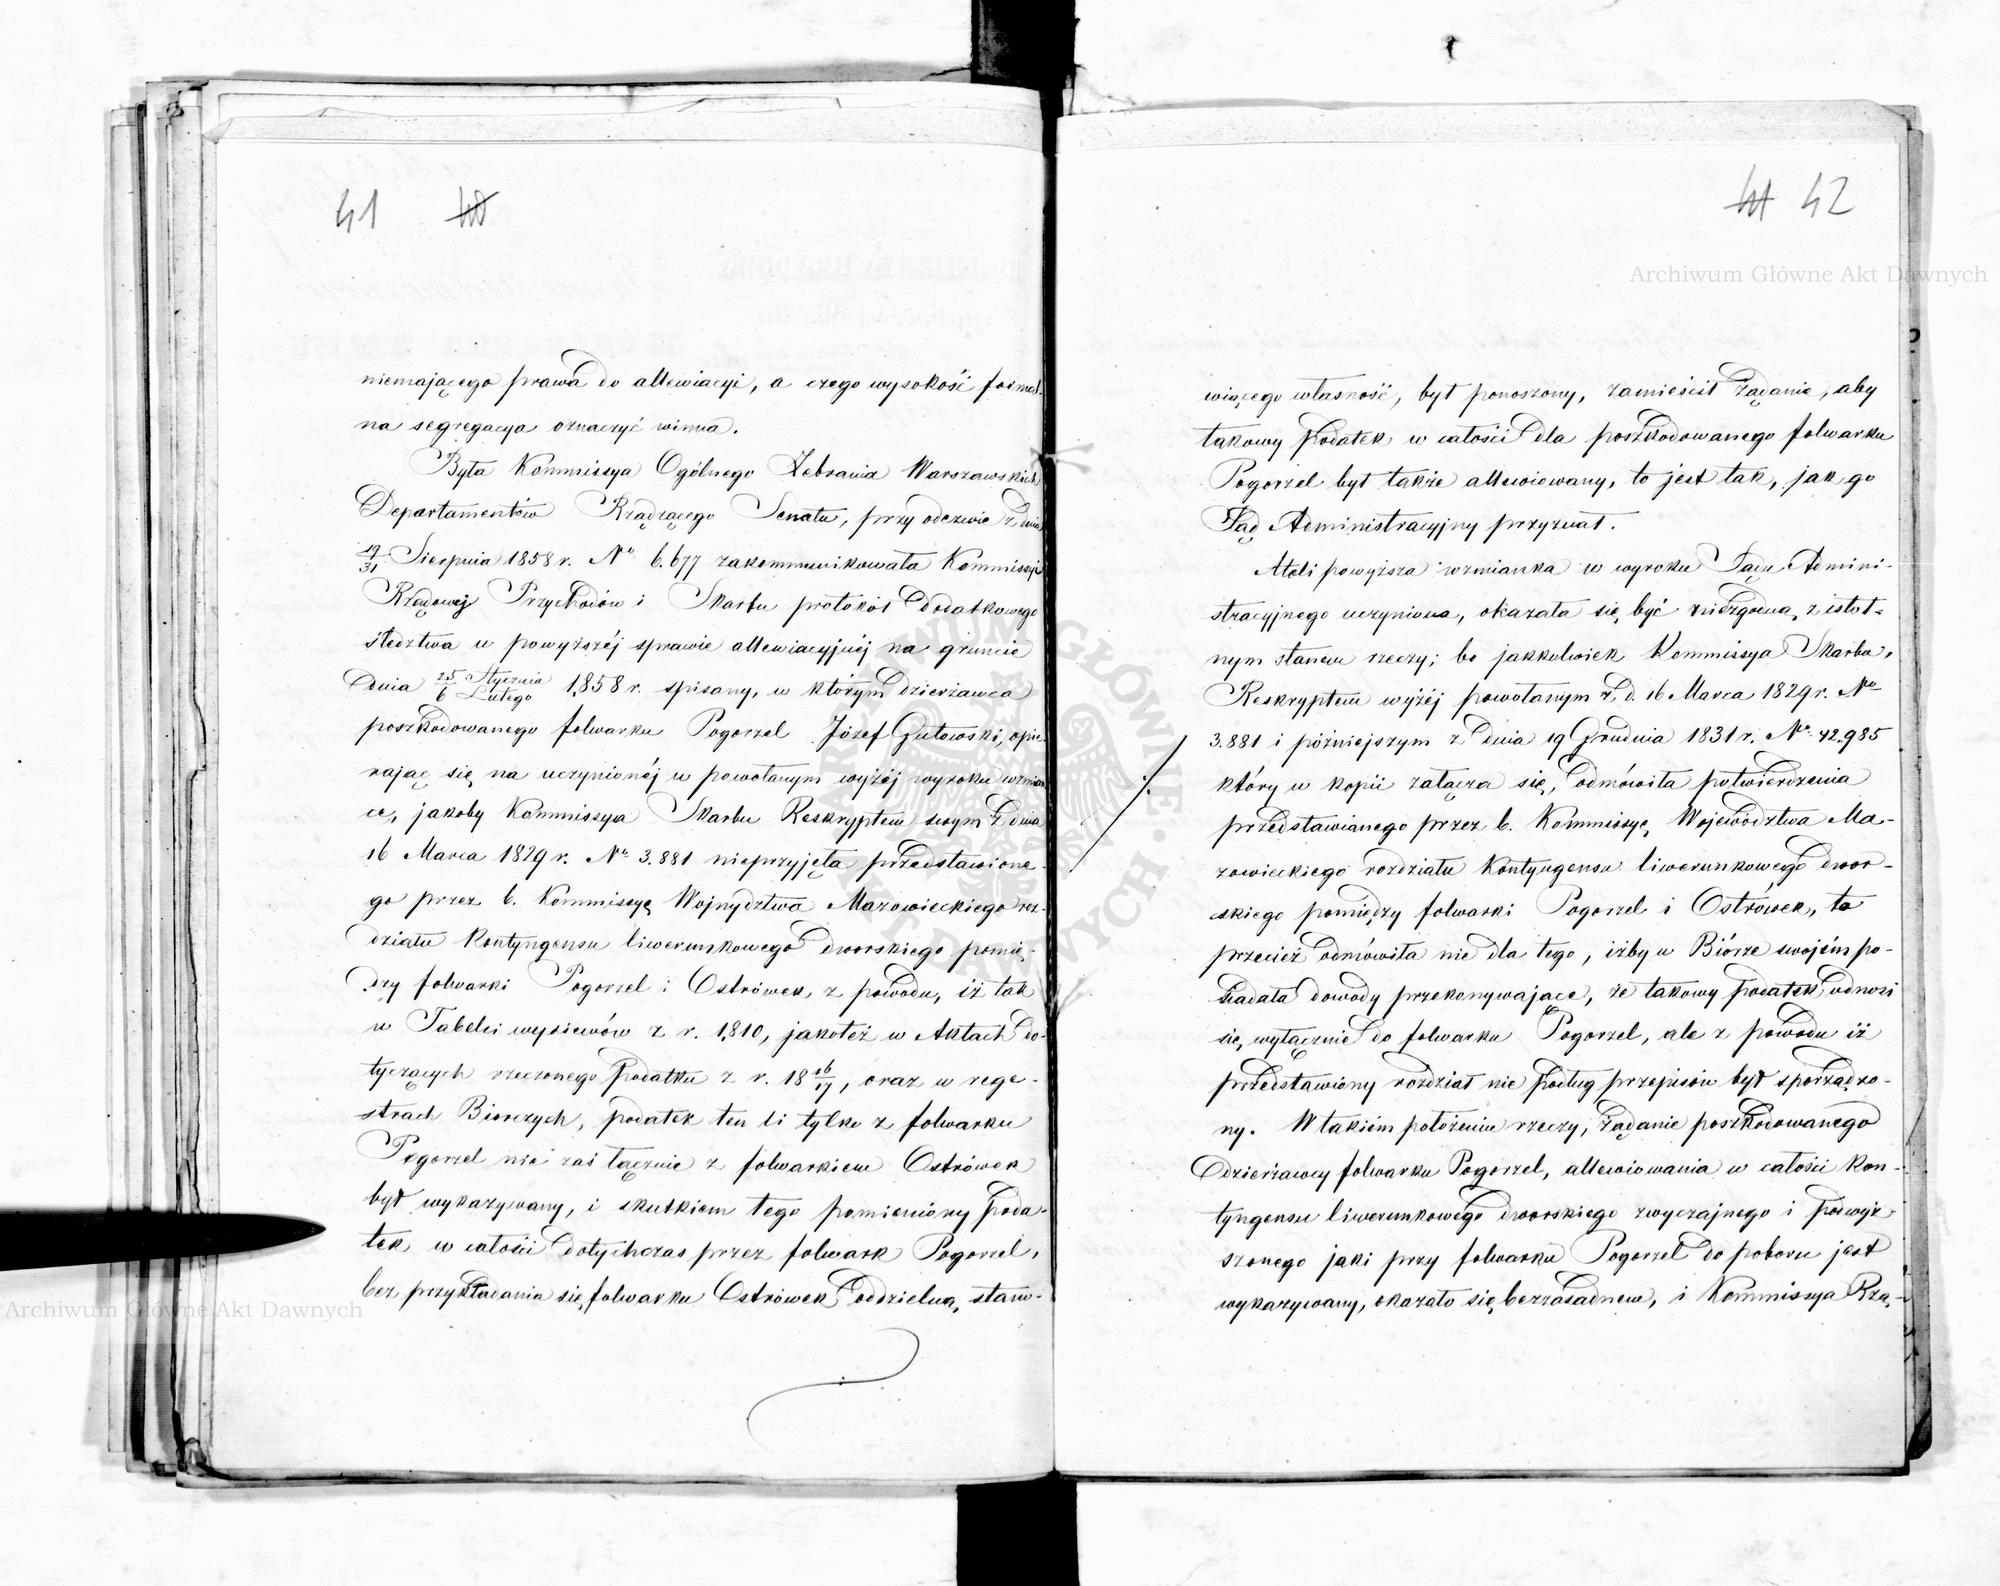 41 40
niemającego prawa do allewiacyi, a czego wysokość formal-
na segregacya oznaczyć winna.
Była Kommissya Ogólnego Zebrania Warszawskich
Departamentów Rządzącego Senatu, przy odezwie z dnia
19/31 Sierpnia 1858 r. No 6.677 zakommunikowała Kommissyi
Rządowej Przychodów i Skarbu protokół dodatkowego
śledztwa w powyższéj sprawie allewiacyjnéj na gruncie
dnia 25/6 Stycznia/Lutego 1858 r. spisany, w którym dzierżawca
poszkodowanego folwarku Pogorzel Józef Gutowski, opie-
rając się na uczynionéj w powołanym wyżéj wyroku wzmian
ce, jakoby Kommissya Skarbu Reskryptem swym z dnia
16 Marca 1829 r. No 3.881 nieprzyjęła przedstawione-
go przez b. Kommissyę Wojwydztwa Mazowieckiego roz-
działu Kontyngensu liwerunkowego dworskiego pomię-
dzy folwarki Pogorzel i Ostrówek, z powodu, iż tak
w Tabelli wysiewów z r. 1810, jakotéż w Aktach do-
tyczących rzeczonego podatku z r. 18 16/17, oraz w rege-
strach Biorczych, podatek ten li tylko z folwarku
Pogorzel nie zaś łącznie z folwarkiem Ostrówek
był wykazywany, i skutkiem tego pomieniony poda-
tek w całości dotychczas przez folwark Pogorzel,
bez przykładania się folwarku Ostrówek oddzielną, stano-
41 42
wiącego własność, był ponoszony, zamieścił żądanie, aby
takowy podatek w całości dla poszkodowanego folwarku
Pogorzel był także allewiowany, to jest tak, jak go
Sąd Administracyjny przyznał.
Atoli powyższa wzmianka w wyroku Sądu Admini-
stracyjnego uczyniona, okazała się być niezgodną z istot-
nym stanem rzeczy; bo jakkolwiek Kommissya Skarbu,
Reskryptem wyżéj powołanym z d. 16 Marca 1829 r. No
3.881 i późniejszym z dnia 19 Grudnia 1831 r. No 42.985
który w kopii załącza się, odmówiła potwierdzenia
przedstawianego przez b. Kommissyę Województwa Ma-
zowieckiego rozdziału Kontyngensu liwerunkowego dwor-
skiego pomiędzy folwarki Pogorzel i Ostrówek, to
przecież odmówiła nie dla tego, iżby w Biórze swojém po-
siadała dowody przekonywające, że takowy podatek odnosi
się wyłącznie do folwarku Pogorzel, ale z powodu iż
przedstawiony rozdział nie podług przepisów był sporządzo-
ny. W takiém położeniu rzeczy, żądanie poszkodowanego
dzierżawcy folwarku Pogorzel, allewiowania w całości Kon-
tyngensu liwerunkowego dworskiego zwyczajnego i podwyż-
szonego jaki przy folwarku Pogorzel do poboru jest
wykazywany, okazało się bezzasadnem, i Kommissya Rzą-
Archiwum Główne Akt Dawnych
Archiwum Główne Akt Dawnych
ARCHIWUM GŁÓWNE AKT DAWNYCH